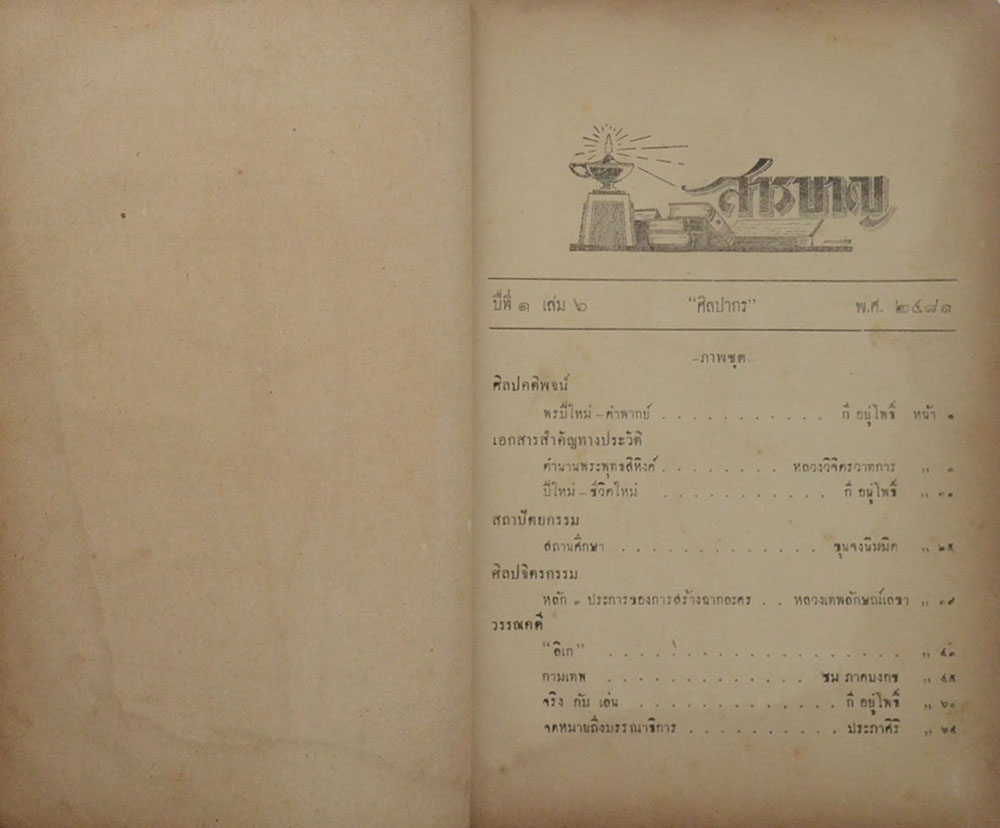 สารบาญ
ปีที่ ๑ เล่ม ๖ "ศิลปากร" พ.ศ. ๒๔๘๑
–ภาพชุด–
ศิลปคดีพจน์
พรปีใหม่ – คำพากย์ . . . . . . . . . . . ธนิต อยู่โพธิ์ หน้า ๑
เอกสารสำคัญทางประวัติ
ตำนานพระพุทธสิหิงค์ . . . . . . . . หลวงวิจิตรวาทการ ,, ๓
ปีใหม่ – ชีวิตใหม่ . . . . . . . . . . . กี อยู่โพธิ์ ,,
สถาปัตยกรรม
สถานศึกษา . . . . . . . . . . . . . ขุนจงนิมมิต ,, ๒๕
ศิลปจิตรกรรม
หลัก ๓ ประการของการสร้างฉากละคร . . หลวงเทพลักษณ์เลขา ,, ๓๙
วรรณคดี
"ลิเก" . . . . . . . . . . . . . . . . . . ,, ๔๓
กามเทพ . . . . . . . . . . . . . ชม ภาคมงคช ,, ๔๕
จริง กับ เล่น . . . . . . . . . . . . . กี อยู่โพธิ์ ,, ๖๑
จดหมายถึงบรรณาธิการ . . . . . . . . . . ประภาศิริ ,,